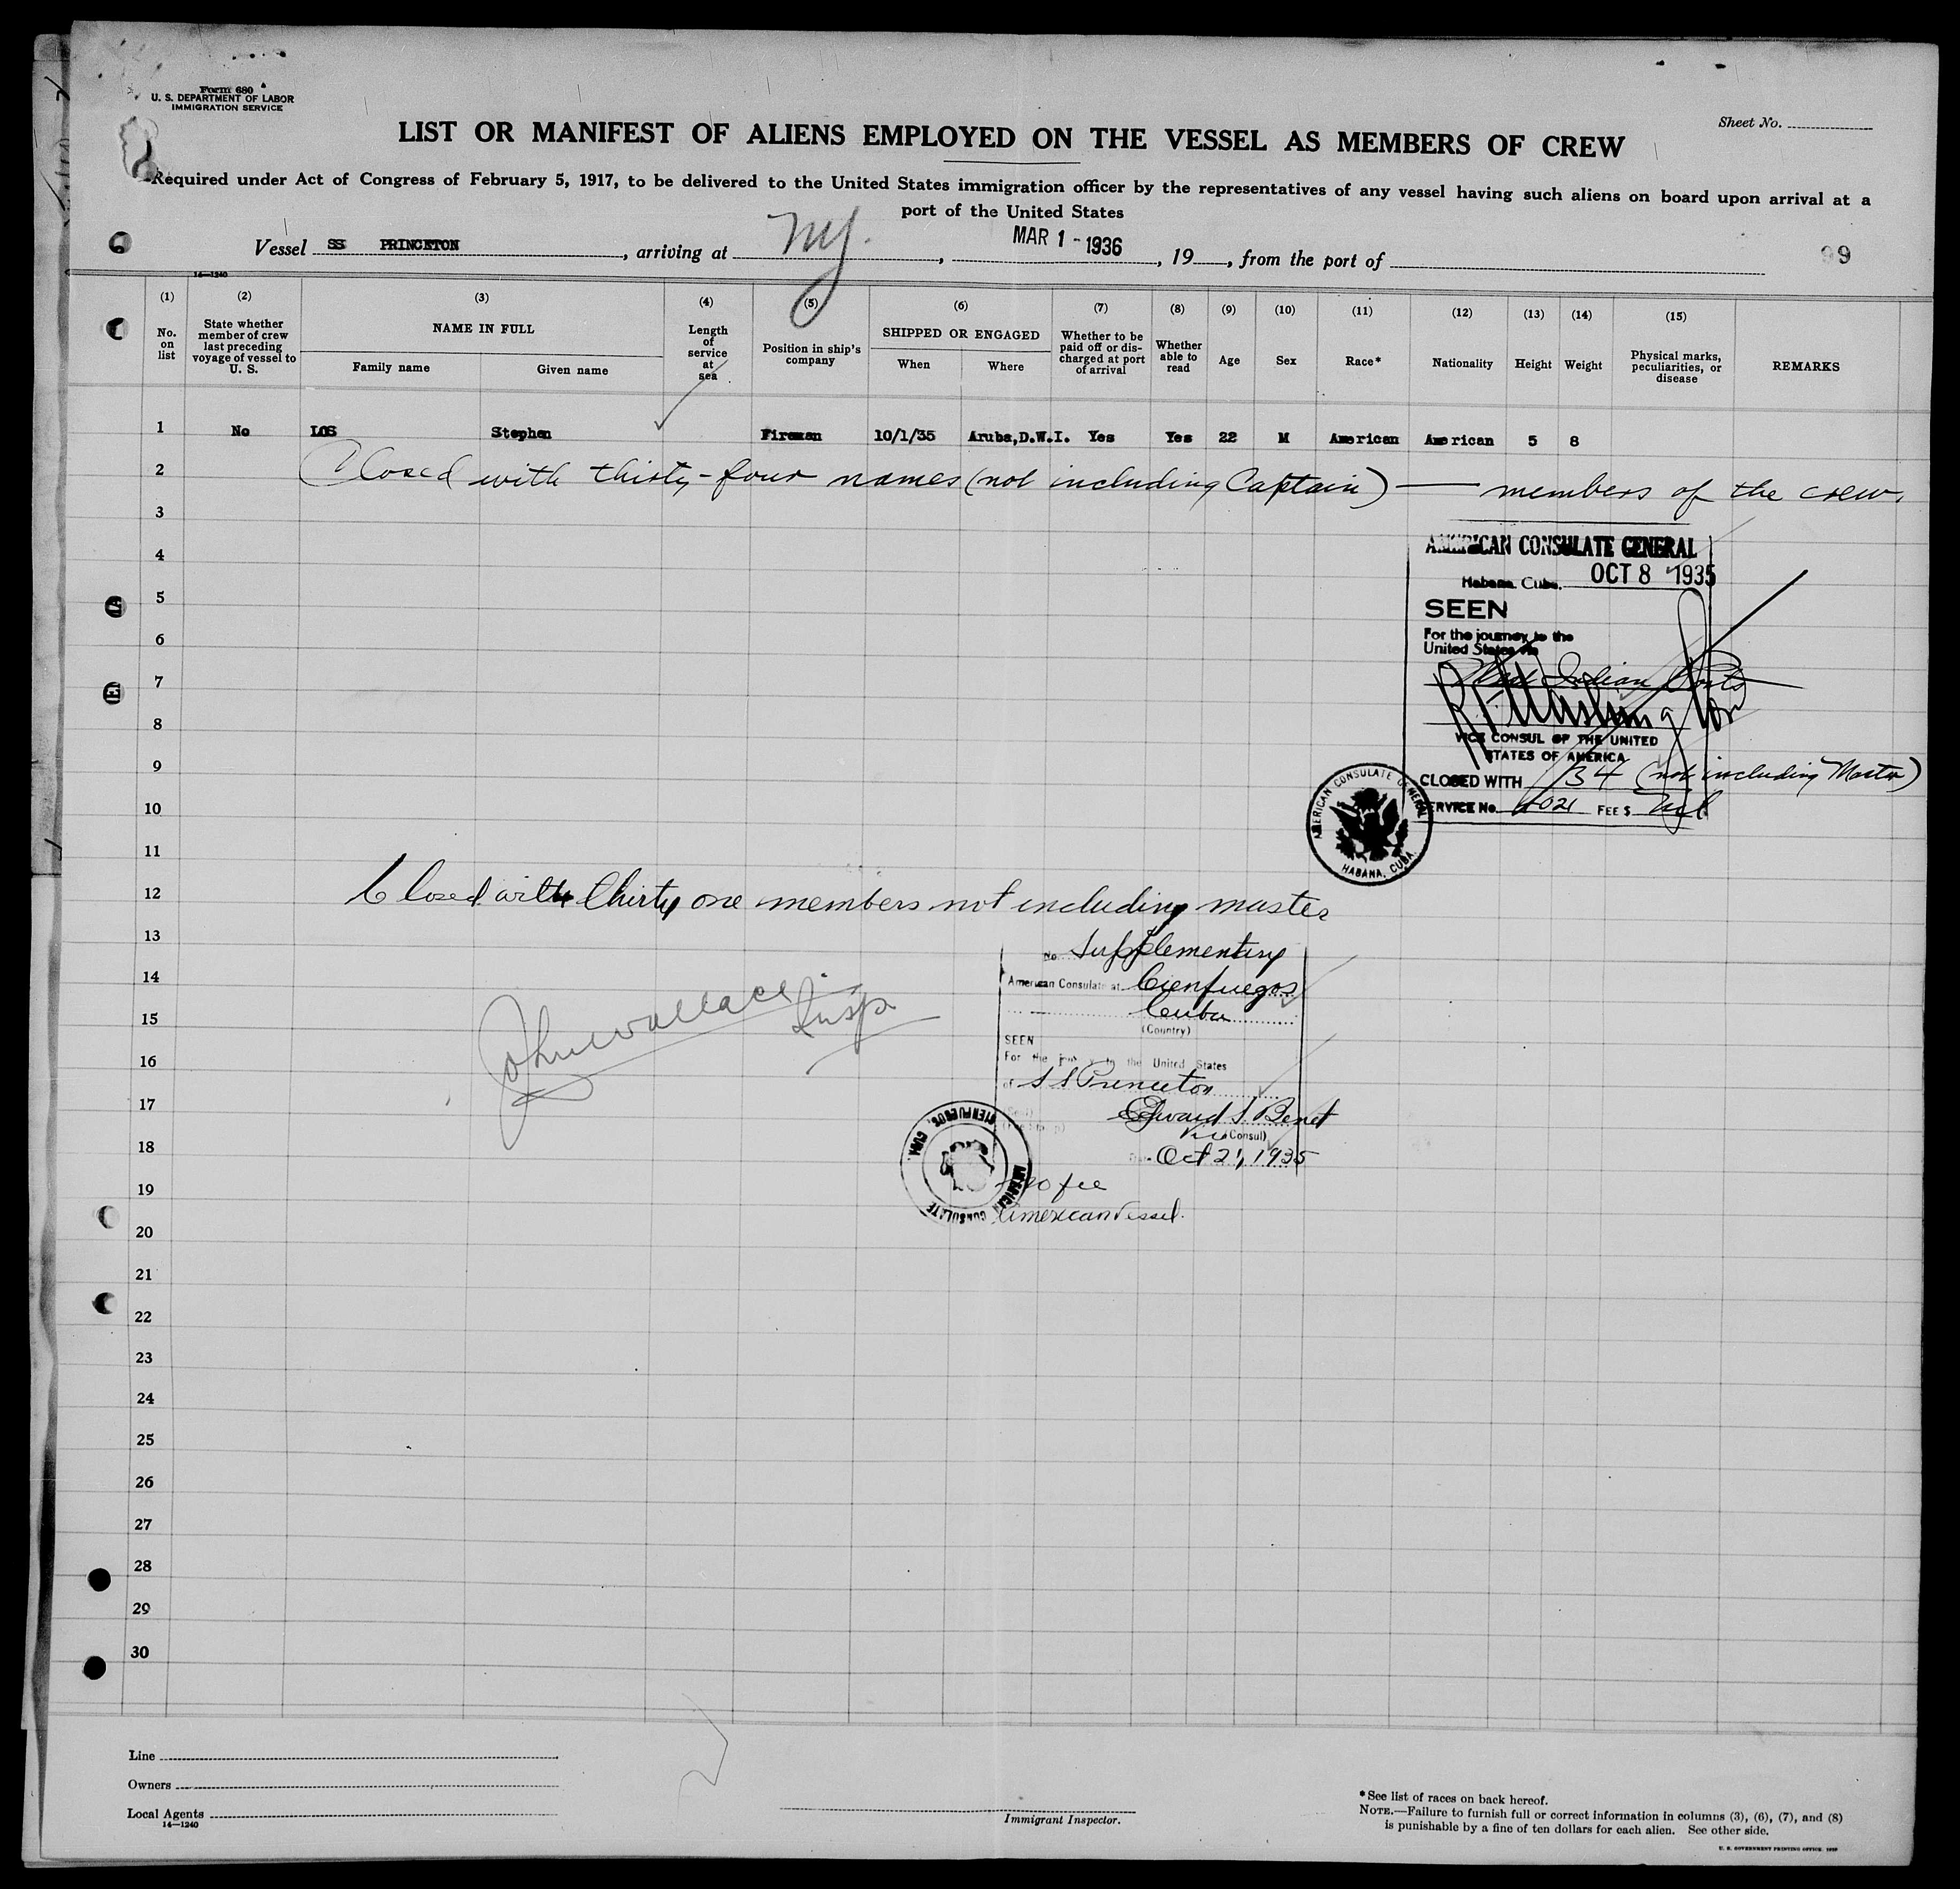 Form 680
U. S. DEPARTMENT OF LABOR
IMMIGRATION SERVICE
Sheet No.
LIST OR MANIFEST OF ALIENS EMPLOYED ON THE VESSEL AS MEMBERS OF CREW
Required under Act of Congress of February 5, 1917, to be delivered to the United States immigration officer by the representatives of any vessel having such aliens on board upon arrival at a
port of the United States
Vessel SS PRINCETON, arriving at NY., MAR 1 - 1936, 19, from the port of
99
14—1240
(1) (2) (3) (4) (5) (6) (7) (8) (9) (10) (11) (12) (13) (14) (15)
No. on list
State whether member of crew last preceding voyage of vessel to U. S.
NAME IN FULL
Family name Given name
Length of service at sea
Position in ship's company
SHIPPED OR ENGAGED
When Where
Whether to be paid off or discharged at port of arrival
Whether able to read
Age Sex Race* Nationality Height Weight
Physical marks, peculiarities, or disease
REMARKS
1 No LOS Stephen Fireman 10/1/35 Aruba,D.W.I. Yes Yes 22 M American American 5 8
2 Closed with thirty-four names (not including Captain) — members of the crew.
3
4 AMERICAN CONSULATE GENERAL
Habana, Cuba. OCT 8 1935
5 SEEN
6 For the journey to the
United States via
7 West Indian Ports
8
VICE CONSUL OF THE UNITED
STATES OF AMERICA
9 CLOSED WITH 34 (not including Master)
10 SERVICE No. 4021 FEE $ Nil
AMERICAN CONSULATE GENERAL
HABANA, CUBA.
11
12 Closed with thirty one members not including master
13 No. Supplementary
14 American Consulate at Cienfuegos
15 Cuba
(Country)
John Wallace Insp.
SEEN
16 For the journey to the United States
of S S Princeton
17 Edward S Benet
Vice (Consul)
18 Oct 21, 1935
19 No fee
American Vessel.
AMERICAN CONSULATE
CIENFUEGOS, CUBA.
20
21
22
23
24
25
26
27
28
29
30
Line
Owners
Local Agents
14—1240
Immigrant Inspector.
*See list of races on back hereof.
NOTE.—Failure to furnish full or correct information in columns (3), (6), (7), and (8)
is punishable by a fine of ten dollars for each alien. See other side.
U. S. GOVERNMENT PRINTING OFFICE